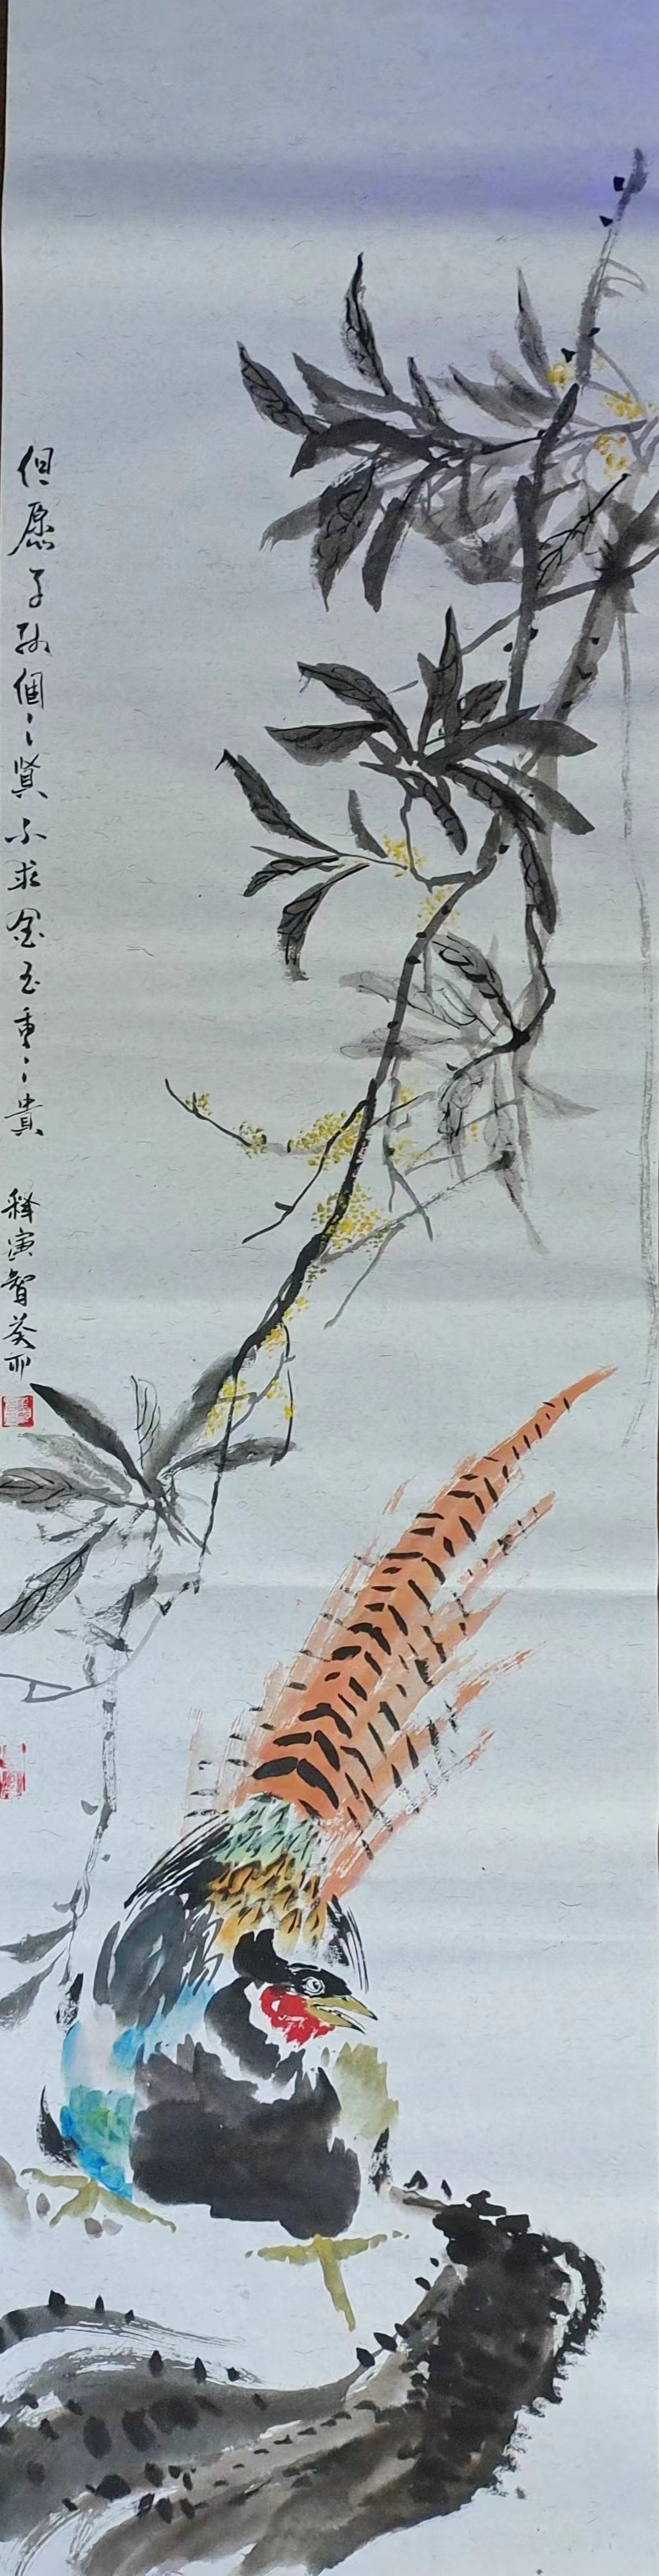 但愿子孙個〻賢不求金玉重〻貴
釋寅智癸卯